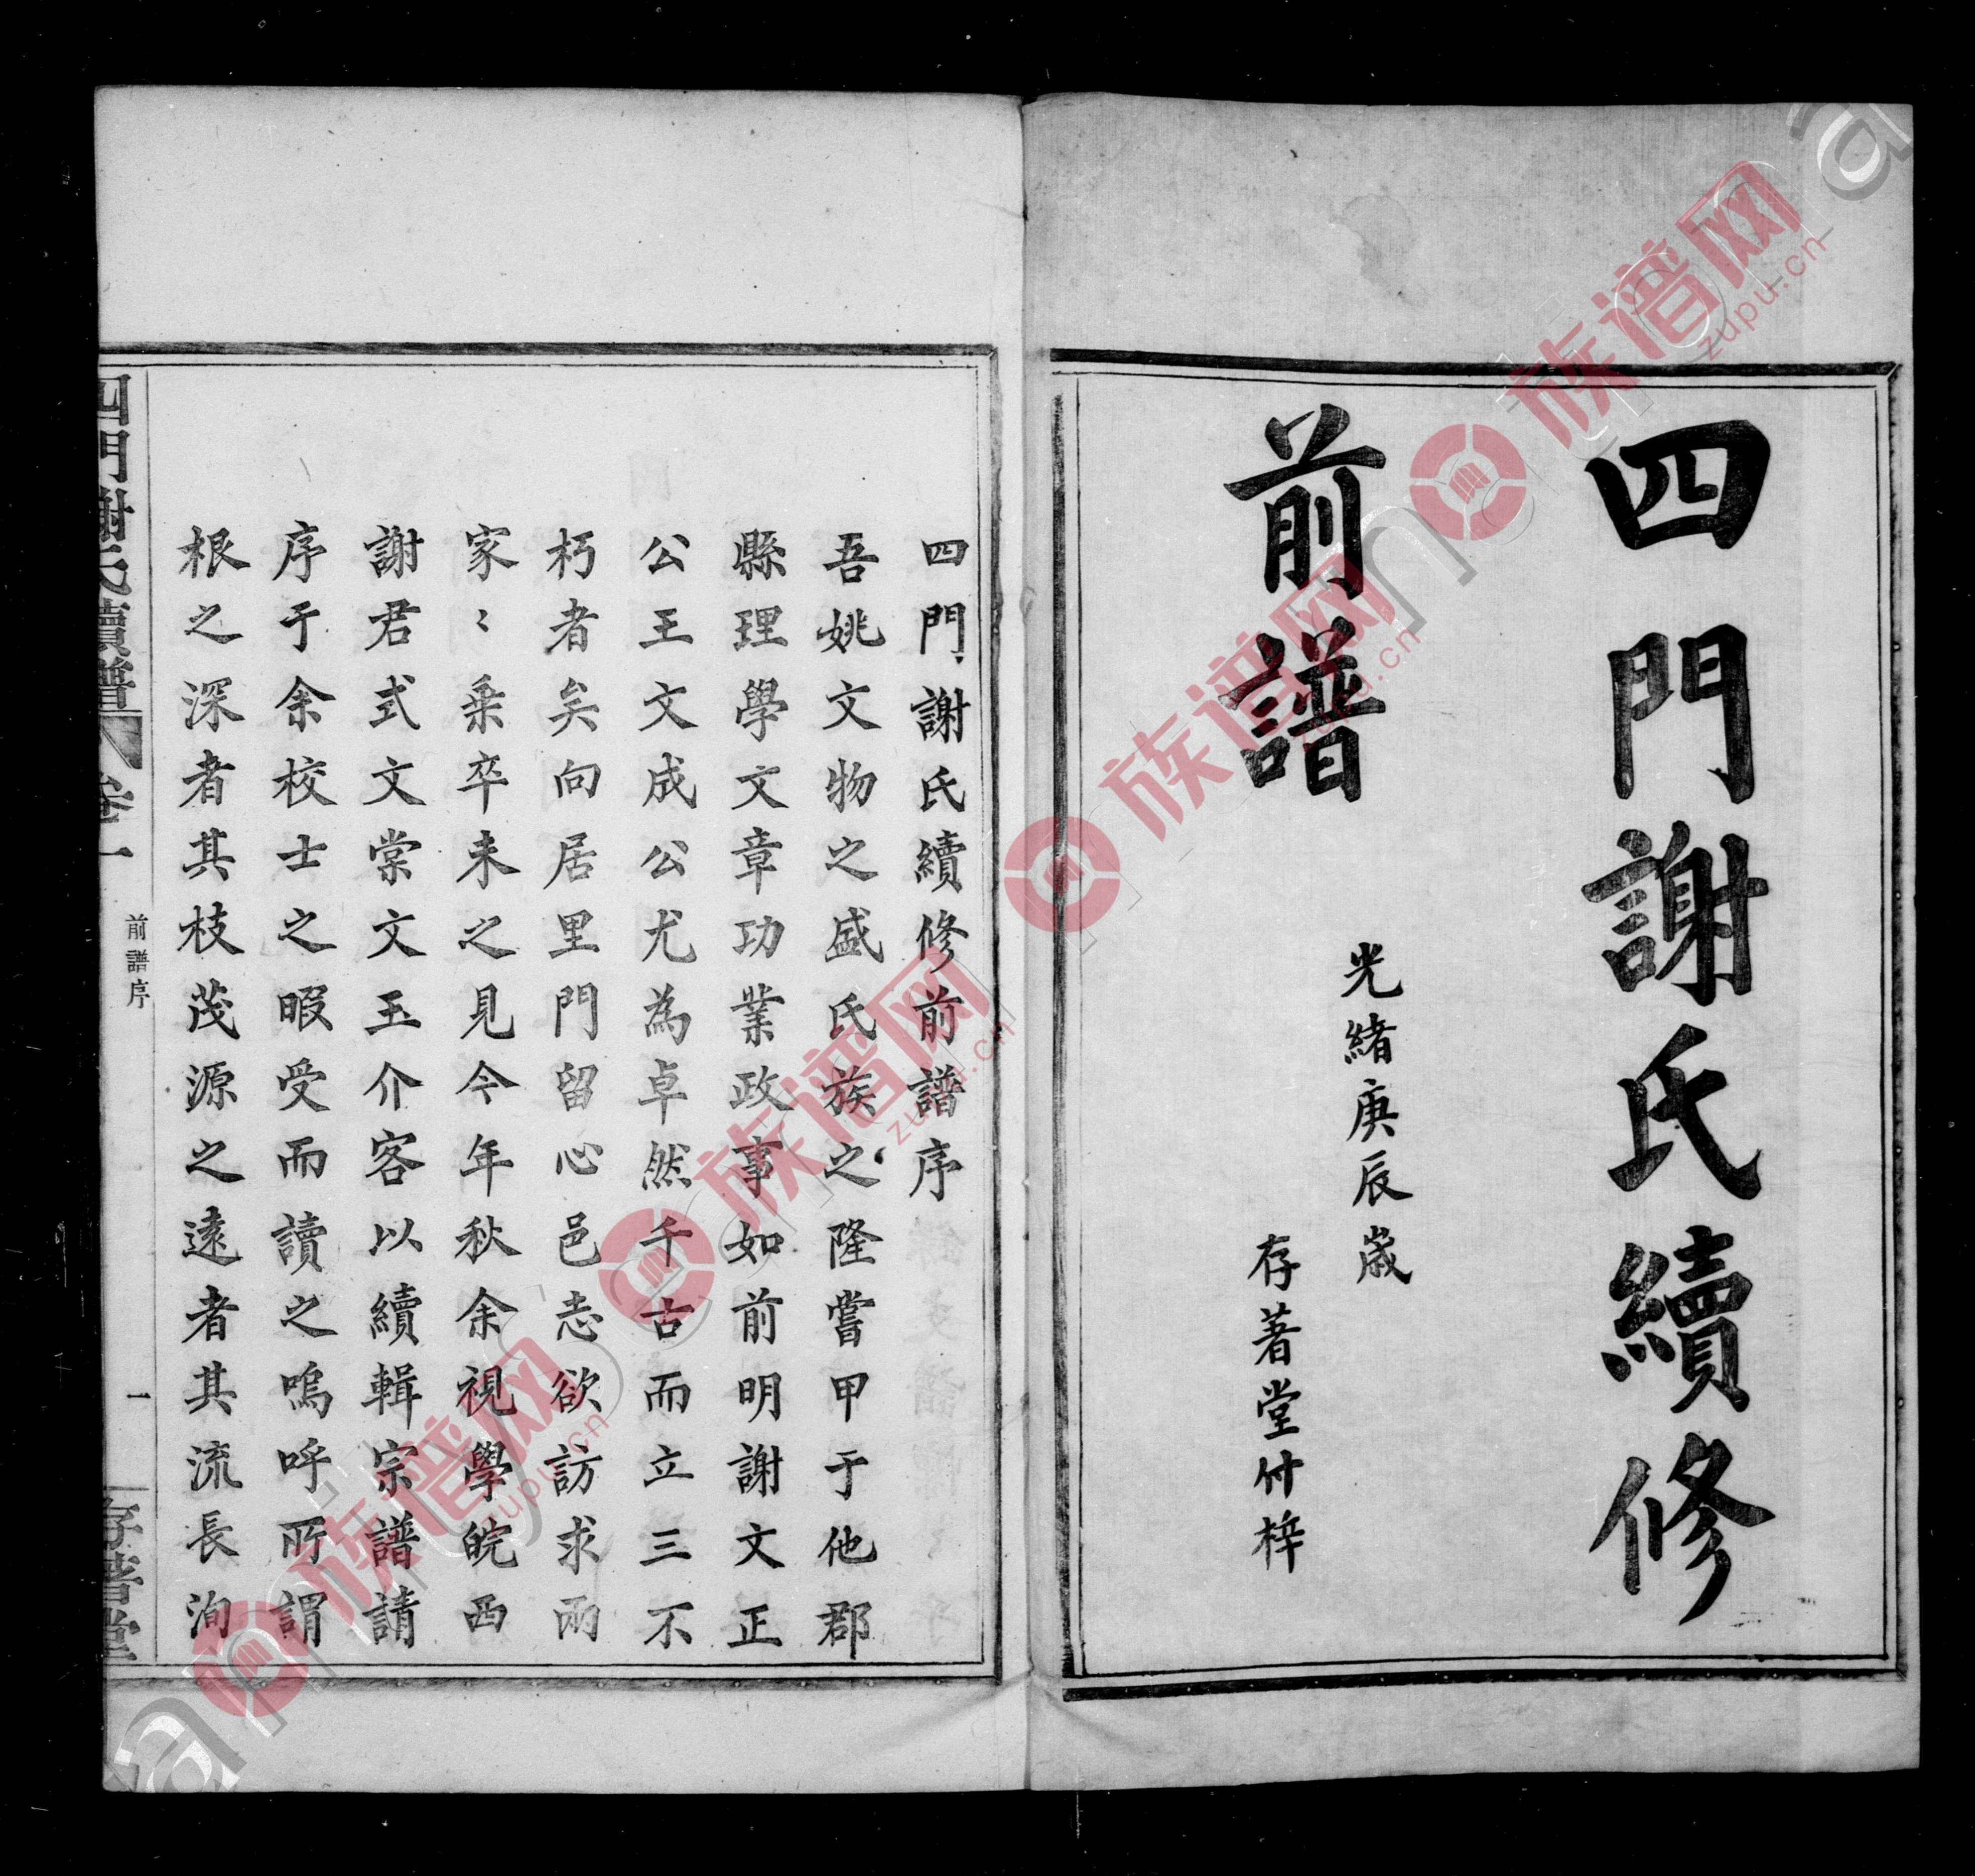 四門謝氏續修
前譜
光緒庚辰歲
存著堂付梓
四門謝氏續修前譜序
吾姚文物之盛氏族之隆嘗甲于他郡
縣理學文章功業政事如前明謝文正
公王文成公尤為卓然千古而立三不
朽者矣向居里門留心邑志欲訪求兩
家〻乗卒未之見今年秋余視學皖西
謝君式文棠文玉介客以續輯宗譜請
序于余校士之暇受而讀之嗚呼所謂
根之深者其枝茂源之遠者其流長洵
四門謝氏續譜
卷一
前譜序
一
存著堂
族谱网
zupu.cn
族谱网
zupu.cn
族谱网
zupu.cn
族谱网
zupu.cn